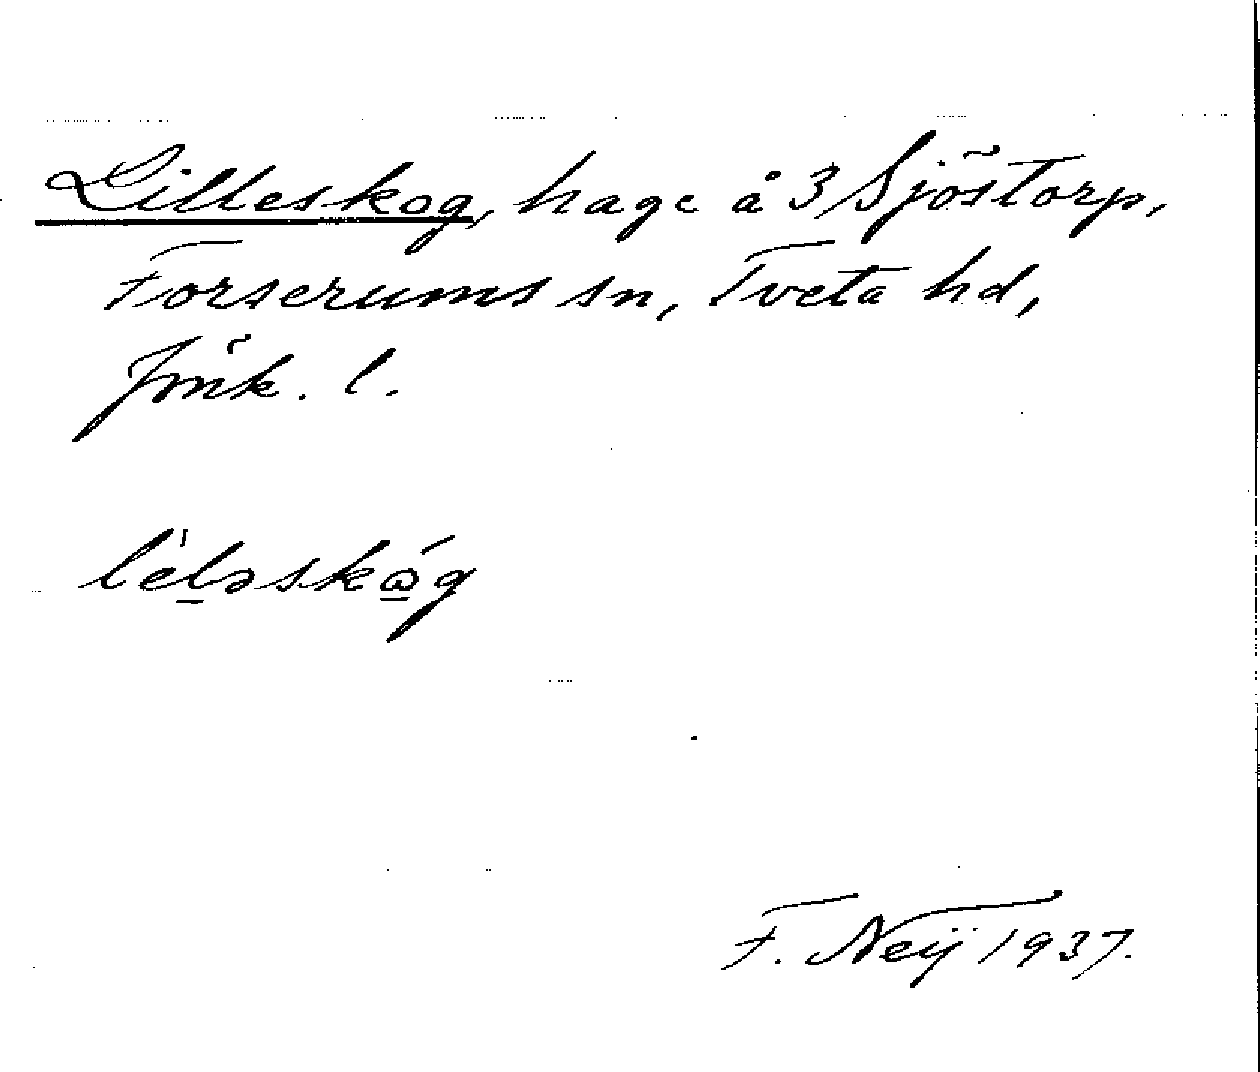 Lilleskog, hage å 3 Sjöstorp,
Forserums sn, Tveta hd,
Jönk. l.
F. Neij 1937.